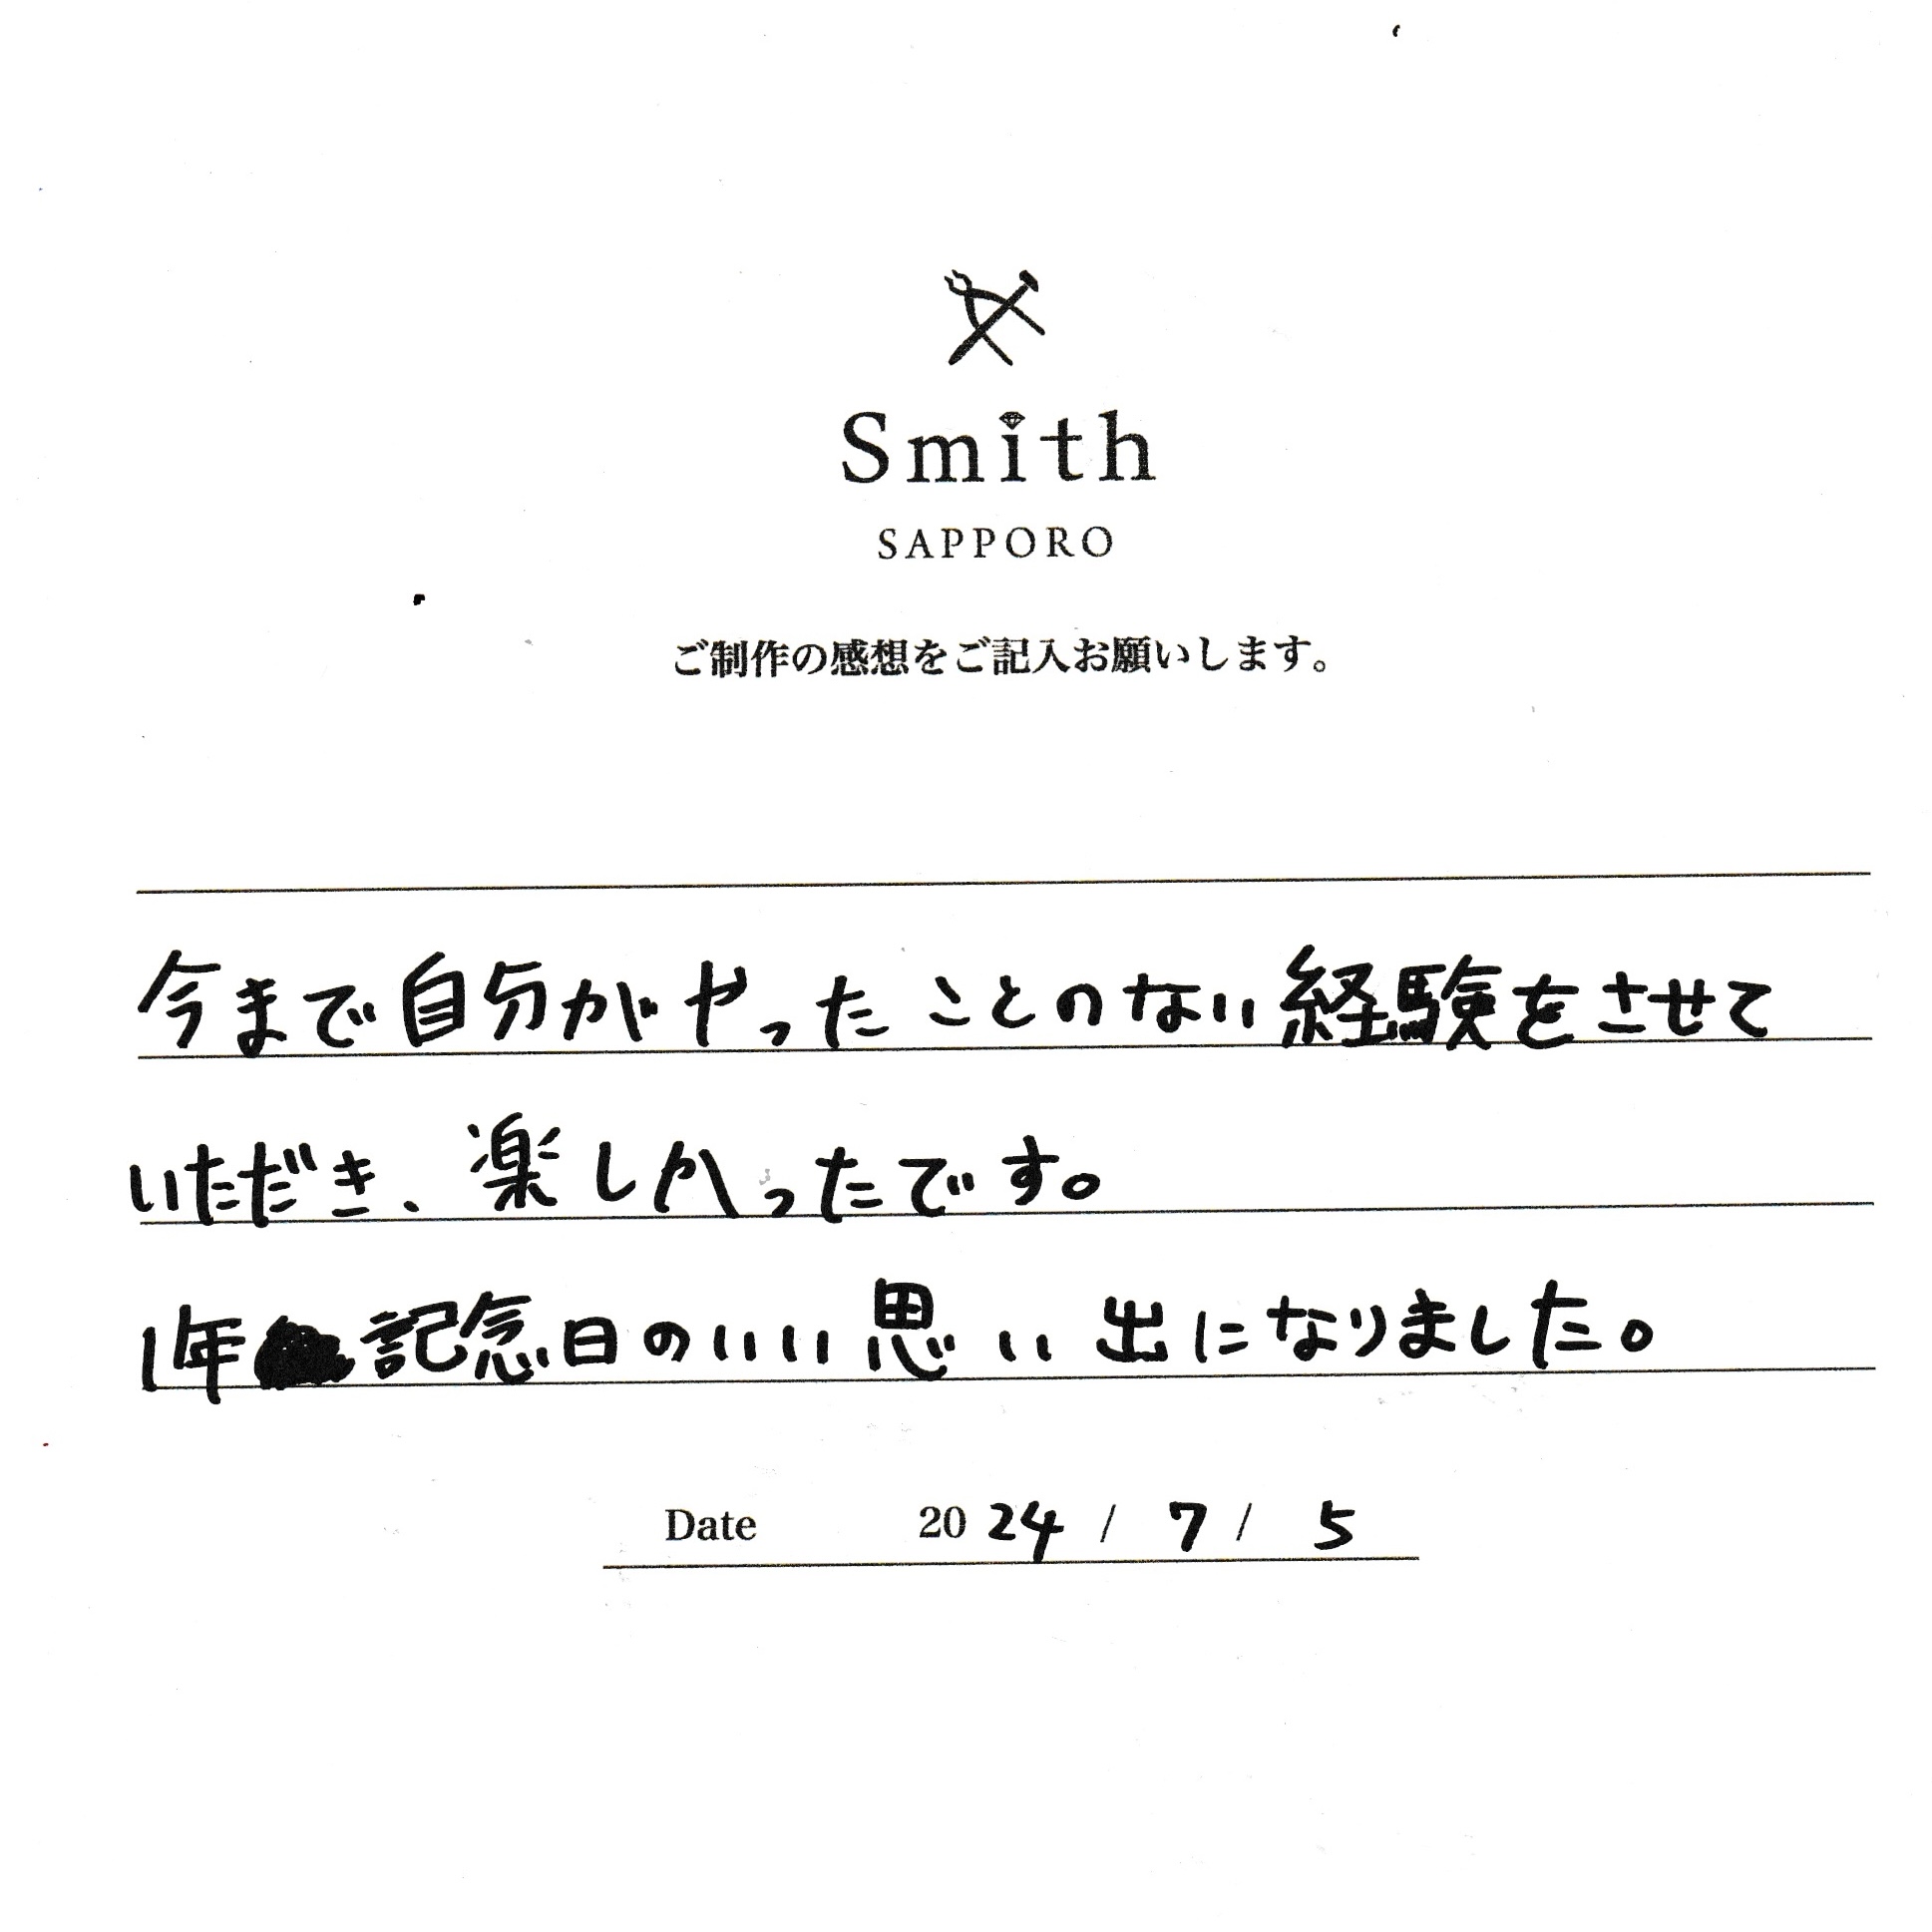 Smith
SAPPORO
ご制作の感想をご記入お願いします。
今まで自分がやったことのない経験をさせて
いただき、楽しかったです。
1年記念日のいい思い出になりました。
Date 2024 / 7 / 5